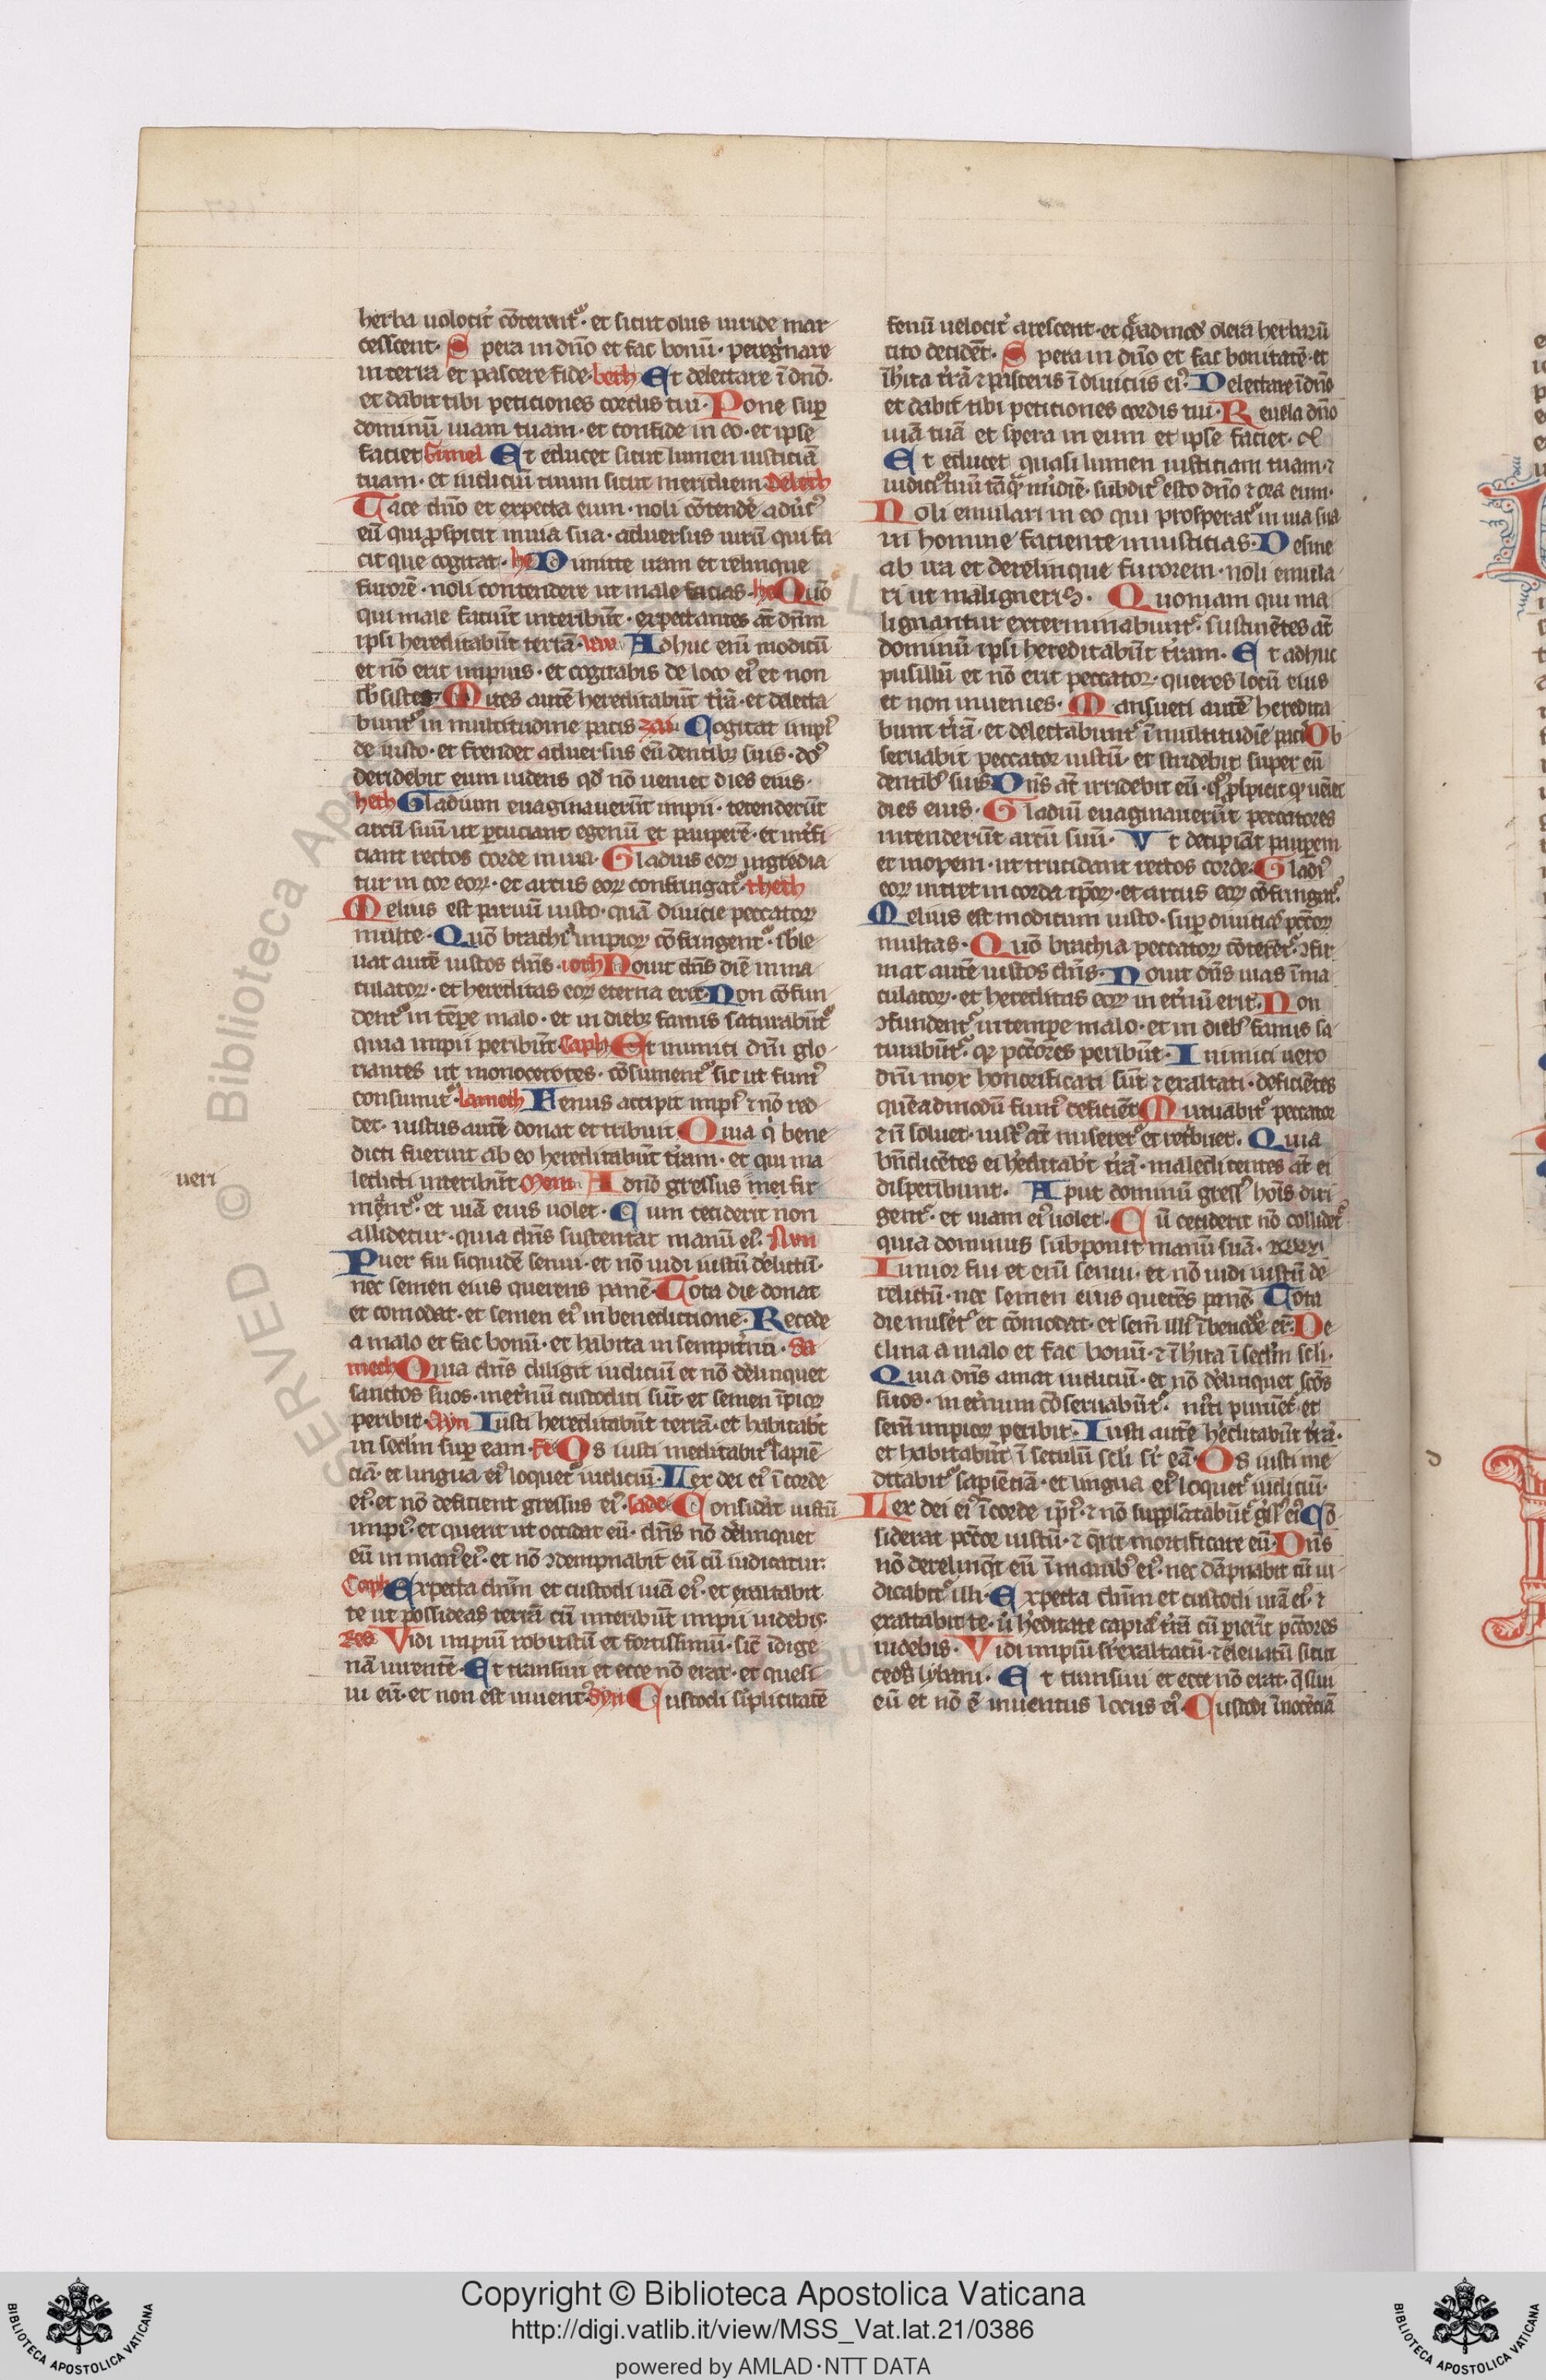 herba uelocit᷑ cōterent᷑· et sicut olus uiride mar
cesscent· Spera in dn̄o et fac bonū· peregͥnare
in terra et pascere fide· beth Et delectare ī dn̄o·
et dabit tibi peticiones cordis tui· Pone suꝑ
dominū uiam tuam· et confide in eo· et ipse
faciet Gimel Et educet sicut lumen iusticiā
tuam· et iudiciū tuum sicut meridiem Deleth
Tace dn̄o et expecta eum· noli cōtendē aduersꝰ
eū qui ꝓspicit in uia sua· aduersus uirū qui fa
cit que cogitat· he Dimitte iram et relinque
furorē· noli contendere ut male facias· he Quō
qui male faciūt interibūt· expectantes aūt dn̄m
ipsi hereditabūt terrā· vau Adhuc enī modicū
et nō erit impius· et cogitabis de loco eiꝰ et non
subsistes· Mites autē hereditabūt trā· et delecta
bunt᷑ in multitudine pacis zai Cogitat impiꝰ
de iusto· et frendet aduersus eū dentibꝫ suis· dn̄s
deridebit eum uidens qd̄ nō ueniet dies eius·
heth Gladium euaginauerūt impii· tetenderūt
arcū suū ut ꝑcutiant egenū et pauperē· et int᷑fi
ciant rectos corde in uia· Gladius eoꝝ ingredia
tur in cor eoꝝ· et arcus eoꝝ confringat᷑· theth
Melius est paruū iusto· quā diuicie peccatoꝝ
multe· Quō brachiꝰ impioꝝ cōfringent᷑· suble
uat autē iustos dn̄s· ioth Nouit dn̄s diē inma
culatoꝝ· et hereditas eoꝝ eterna erit· Non cōfun
dent᷑ in tēpe malo· et in diebꝫ famis saturabūt᷑
quia impii peribūt Caph Et inimici dn̄i glo
riantes ut monocerotes· cōsument᷑ sicut fumꝰ
consumit᷑· lameth Fenus accipit impiꝰ ⁊ nō red
det· iustus autē donat et tribuit Quia qͥ bene
dicti fuerint ab eo hereditabūt t᷑ram· et qui ma
ueri
ledicti interibūt Mem A dn̄o gressus mei fir
mant᷑· et uiā eius uolet· Cum ceciderit non
allidetur· quia dn̄s sustentat manū eiꝰ· Nun
Puer fui siquidē senui· et nō uidi iustū d᷑elictū·
nec semen eius querens panē· Tota die donat
et comodat· et semen eiꝰ in benedictione· Recede
a malo et fac bonū· et habita in sempit᷑nū· Sa
mech Quia dn̄s diligit iudiciū et nō d᷑elinquet
sanctos suos· inet᷑nū custoditi sūt· et semen īpioꝝ
peribit· Ayn Iusti hereditabūt terrā· et habitabt̄
in sc̄lm suꝑ eam· Fe Os iusti meditabit᷑ sapiē
ciā· et lingua eiꝰ loquet᷑ iudiciū· Lex dei eiꝰ ī corde
eiꝰ· et nō deficient gressus eiꝰ· Sade Considat iustū
impiꝰ· et querit ut occidat eū· dn̄s nō d᷑elinquet
eū in manꝰ eiꝰ· et nō ꝯdempnabit eū cū iudicatur·
Coph Expecta dn̄m et custodi uiā eiꝰ· et exaltabit
te ut possideas terrā cū interibūt impii uidebis·
Res Vidi impiū robustū et fortissimū· sic̄ īdige
nā uirentē· Et transiui et ecce nō erat· et quesi
ui eū· et non est inuentꝰ· Syn Custodi sīplicitatē
fenū uelocit᷑ arescent· et qͣ̄admodꝰ olera herbarū
cito decidēt· Spera in dn̄o et fac bonitatē· et
īhita t᷑rā ⁊ pasceris ī diuiciis eiꝰ· Delectare ī dn̄o
et dabit tibi petitiones cordis tui· Reuela dn̄o
uiā tuā et spera in eum et ipse faciet·
Et educet quasi lumen iustitiam tuam· ⁊
iudiciū tuū tāqͣ̄ mͥdiē· subditꝰ esto dn̄o ⁊ ora eum·
Noli emulari in eo qui prosperat᷑ in uia sua
in homine faciente iniusticias· Desine
ab ira et derelinque furorem· noli emula
ri ut maligneris· Quoniam qui ma
lignantur exterminabunt᷑· sustinētes aūt
dominū ipsi hereditabūt t᷑ram· Et adhuc
pusillū et nō erit peccator· queres locū eius
et non inuenies· Mansueti autē heredita
bunt t᷑rā· et delectabunt᷑ ī multitudīe pacͥ Ob
seruabit peccator iustū· et stridebit super eū
dentibꝰ suis Dn̄s aūt irridebit eū· qm̄ ꝓspicit qꝫ ueniet
dies eius· Gladiū euaginauerūt peccatores
intenderūt arcū suū· Vt decipiāt pauꝑem
et inopem· ut trucident rectos corde· Gladiꝰ
eoꝝ intret in corda ip̄oꝝ· et arcus eoꝝ cōfringat᷑·
Melius est modicum iusto· suꝑ diuitias pc̄coꝝ
multas· Quō brachia peccatoꝝ cōterēt᷑· ꝯfir
mat autē iustos dn̄s· Nouit dn̄s uias īma
culatoꝝ· et hereditas eoꝝ in et᷑nū erit· Non
ꝯfundent᷑ in tempe malo· et in diebꝰ famis sa
turabūt᷑· qꝫ pc̄cōres peribūt· Inimici uero
dn̄i mox honorificati sūt ⁊ exaltati· deficiētes
quēadmodū fumꝰ deficiēt· Mutuabit᷑ peccator
⁊ ñ soluet· iustꝰ aūt miseret᷑ et ret᷑buet· Quia
bn̄dicētes ei h᷑editabt̄ t᷑rā· maledicentes aūt ei
disperibunt· Aput dominū gress᷑ hoīs diri
gent᷑· et uiam eiꝰ uolet· Cū ceciderit nō collidet᷑
quia dominus subponit manū suā·
Iunior fui et enī senui· et nō uidi iustū de
relictū· nec semen eius querēs panē· Tota
die miset᷑ et cōmodat· et sem̄ illiꝰ ī bened᷑ce er̄· De
clina a malo et fac bonū· ⁊ īhita ī sc̄lm sc̄li·
Quia dn̄s amat iudiciū· et nō d᷑elinquet scōs
suos· in et᷑num cōseruabūt᷑· iniusti puniēt᷑ et
sem̄ impioꝝ peribit· Iusti autē h᷑editabūt t᷑rā·
et habitabūt ī seculū sc̄li sr̄ eā· Os iusti me
ditabit᷑ sapiēciā· et lingua eiꝰ loquet᷑ iudiciū·
Lex dei eiꝰ ī corde ip̄iꝰ· ⁊ nō supplātabūt᷑ gͥssꝰ eiꝰ Cō
siderat pc̄cor iustū· ⁊ qͥrit mortificare eū· Dn̄s
nō derelinqͥt eū ī manibꝰ eiꝰ· nec dāpnabit cū iu
dicabit᷑ illi· Expecta dn̄m et custodi uiā eiꝰ· ⁊
exaltabit te· ut h᷑editate capias t᷑rā cū pierīt pc̄cores
uidebis· Vidi impiū sr̄exaltatū· ⁊ eleuatū sicut
cedrꝰ lybani· Et transiui et ecce nō erat· q̄siui
eū et nō ē inuentus locus eiꝰ· Custodi īnocēciā
Copyright © Biblioteca Apostolica Vaticana
http://digi.vatlib.it/view/MSS_Vat.lat.21/0386
powered by AMLAD·NTT DATA
BIBLIOTECA APOSTOLICA VATICANA
BIBLIOTECA APOSTOLICA VATICANA